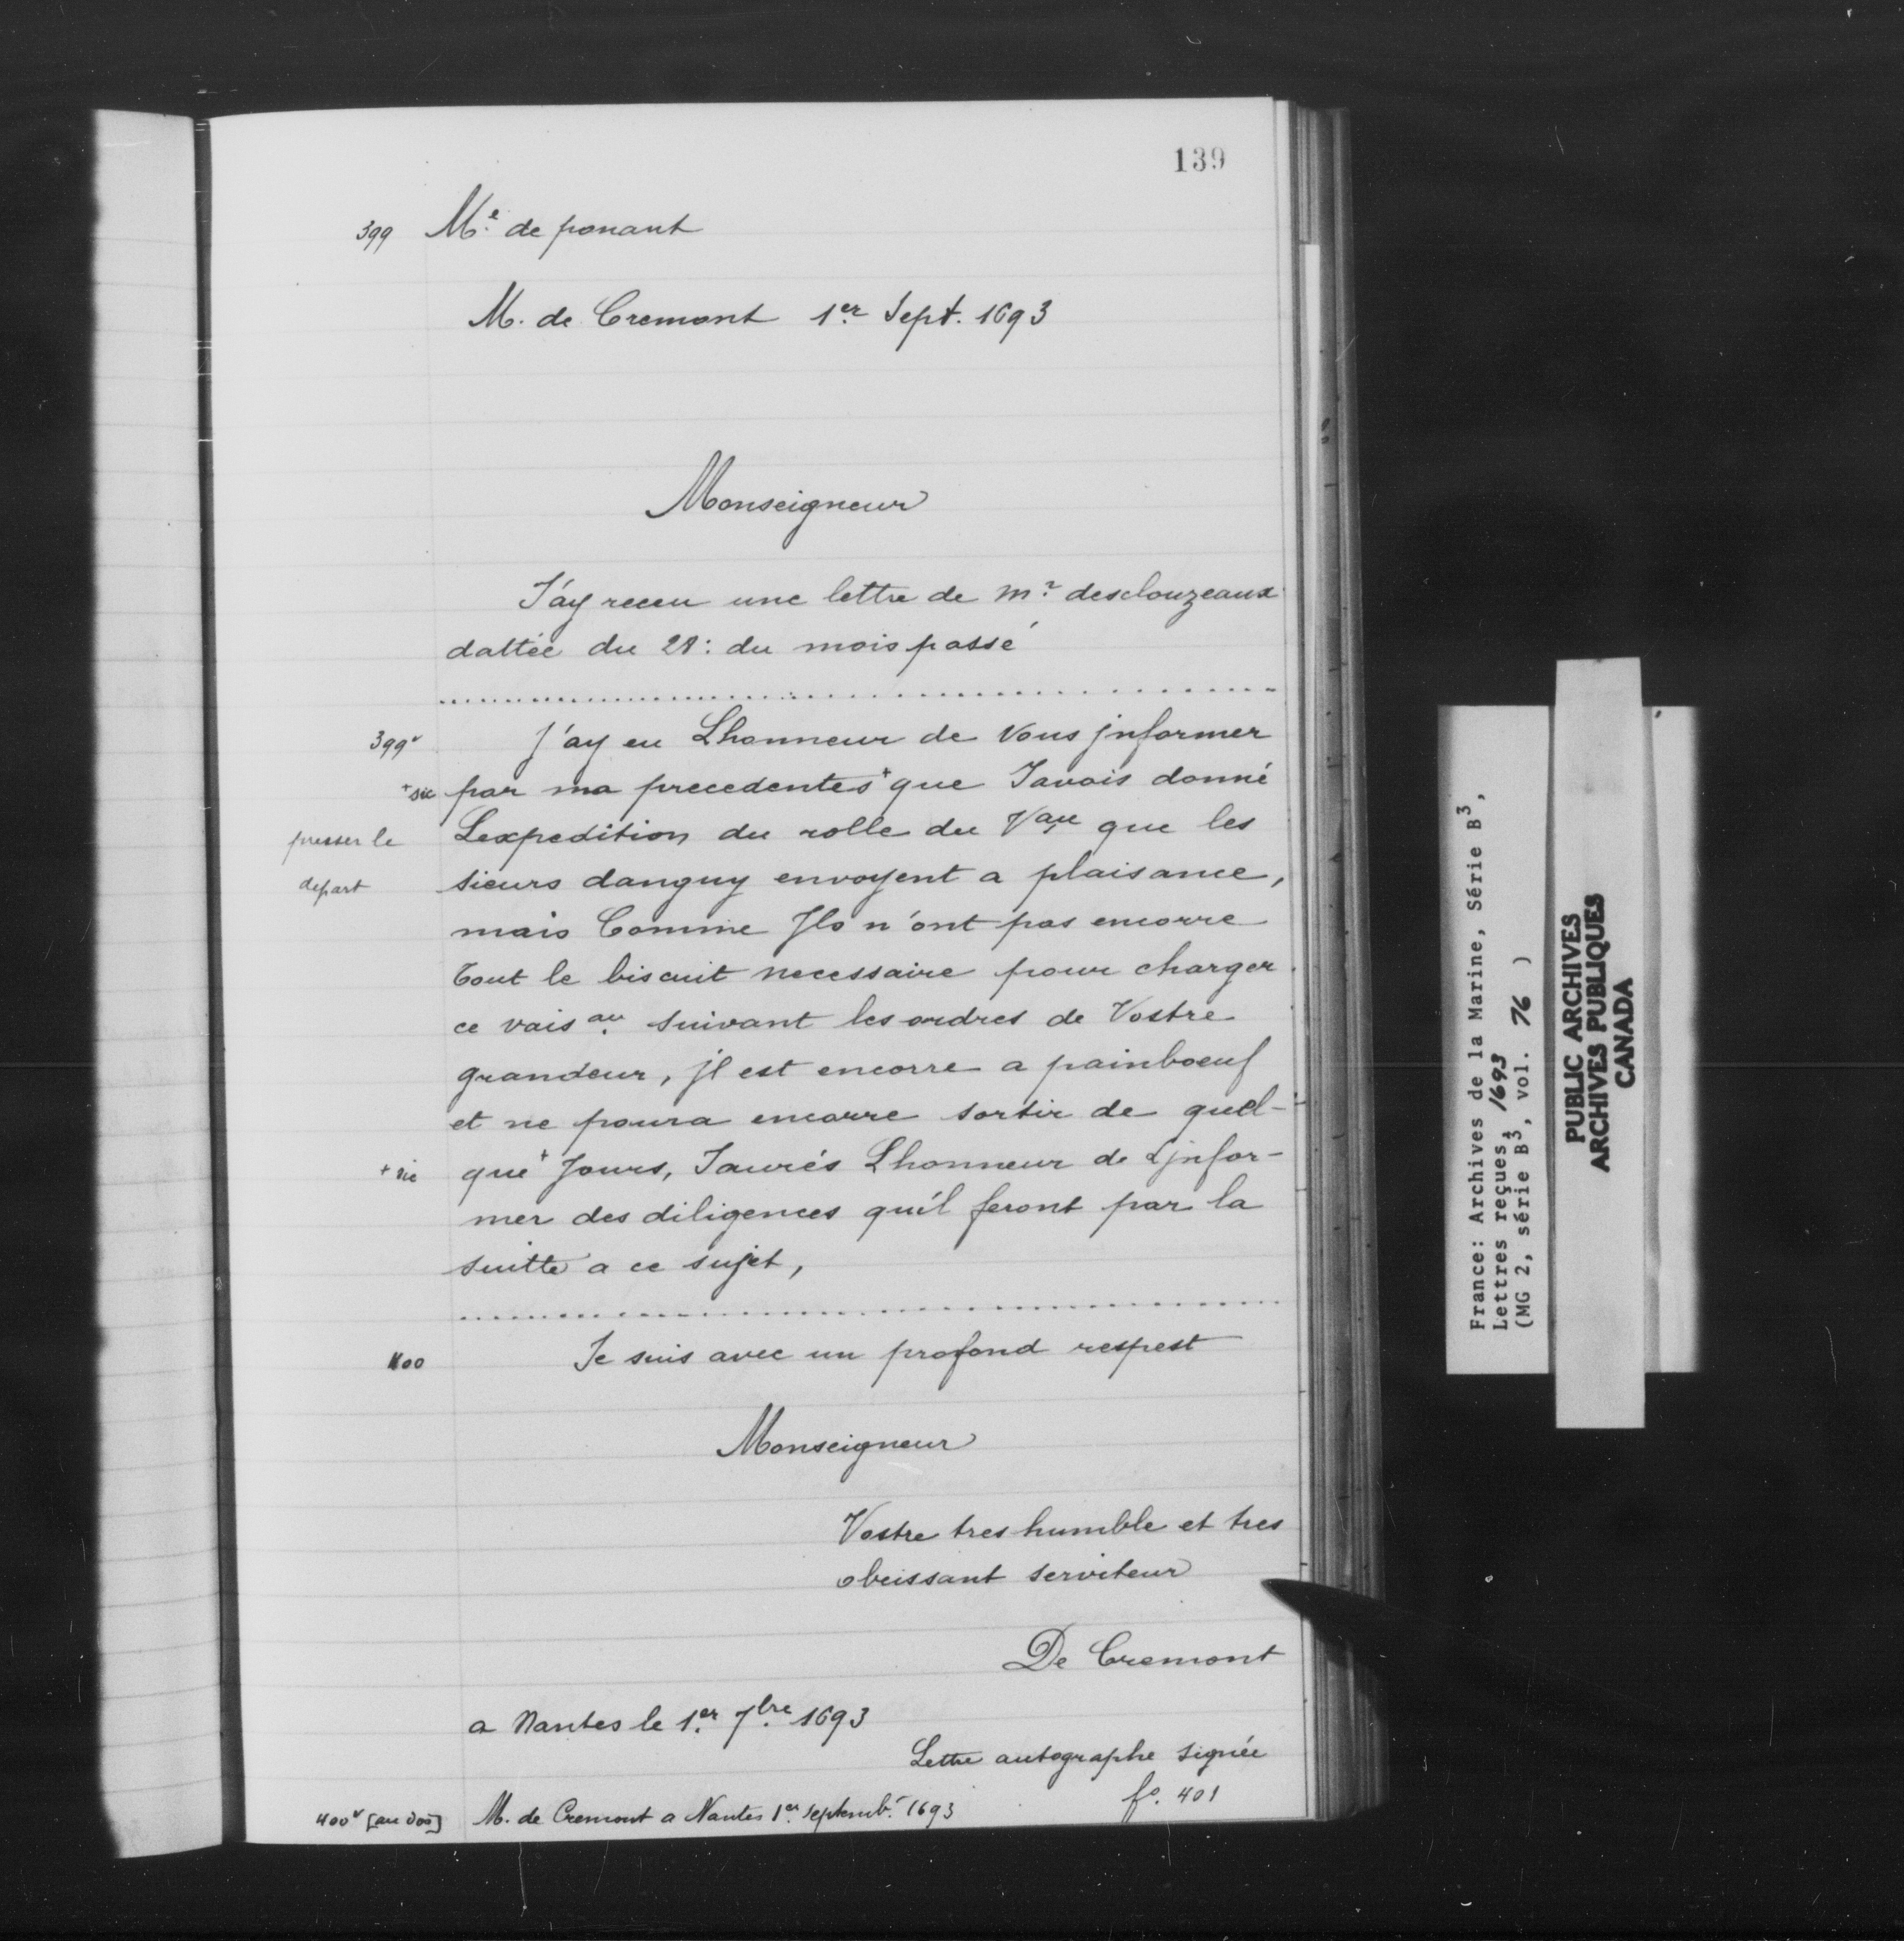 139
399 M.e de ponant
M. de Cremont 1er Sept. 1693
Monseigneur
J'ay receu une lettre de mr desclouzeaux
dattée du 28: du mois passé
399v J'ay eu Lhonneur de Vous jnformer
+sic par ma precedentes+ que Javois donné
presser le Lexpedition du rolle du Vau que les
depart sieurs danguy envoyent a plaisance,
mais Comme Jls n'ont pas encorre
tout le biscuit necessaire pour charger
ce vaisau suivant les ordres de Vostre
grandeur, jl est encorre a painboeuf
et ne poura encorre sortir de quel-
+ sic que+ Jours, Jaurés Lhonneur de Ljnfor-
mer des diligences qu'il feront par la
suitte a ce sujet,
400 Je suis avec un profond respest
Monseigneur
Vostre tres humble et tres
obeissant serviteur
De Cremont
a Nantes le 1.er 7bre 1693
Lettre autographe signée
fo. 401
400v [au dos] M. de Cremont a Nantes 1er septembr 1693
France: Archives de la Marine, Série B3,
Lettres reçues, 1693
(MG 2, série B3, vol. 76 )
PUBLIC ARCHIVES
ARCHIVES PUBLIQUES
CANADA